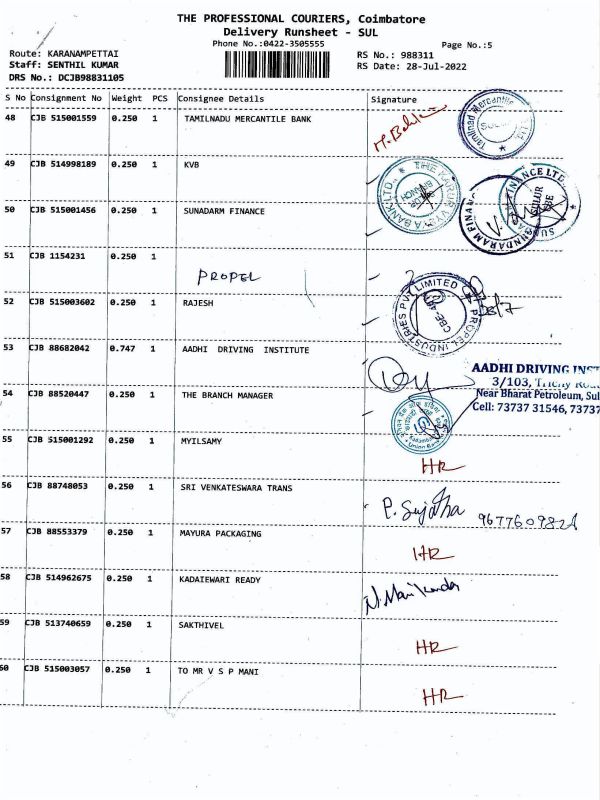 THE PROFESSIONAL COURIERS, Coimbatore
Delivery Runsheet - SUL
Phone No.:0422-3505555
Page No.:5
Route: KARANAMPETTAI
RS No.: 988311
Staff: SENTHIL KUMAR
RS Date: 28-Jul-2022
DRS No.: DCJB98831105
S No Consignment No Weight PCS Consignee Details Signature
48 CJB 515001559 0.250 1 TAMILNADU MERCANTILE BANK
49 CJB 514998189 0.250 1 KVB
50 CJB 515001456 0.250 1 SUNADARM FINANCE
51 CJB 1154231 0.250 1
PROPEL
52 CJB 515003602 0.250 1 RAJESH
53 CJB 88682042 0.747 1 AADHI DRIVING INSTITUTE
AADHI DRIVING INST
3/103, Trichy Road
Near Bharat Petroleum, Sul
Cell: 73737 31546, 73737
54 CJB 88520447 0.250 1 THE BRANCH MANAGER
55 CJB 515001292 0.250 1 MYILSAMY HR
56 CJB 88748053 0.250 1 SRI VENKATESWARA TRANS P. Sujatha
57 CJB 88553379 0.250 1 MAYURA PACKAGING HR
58 CJB 514962675 0.250 1 KADAIEWARI READY
59 CJB 513740659 0.250 1 SAKTHIVEL HR
60 CJB 515003057 0.250 1 TO MR V S P MANI HR